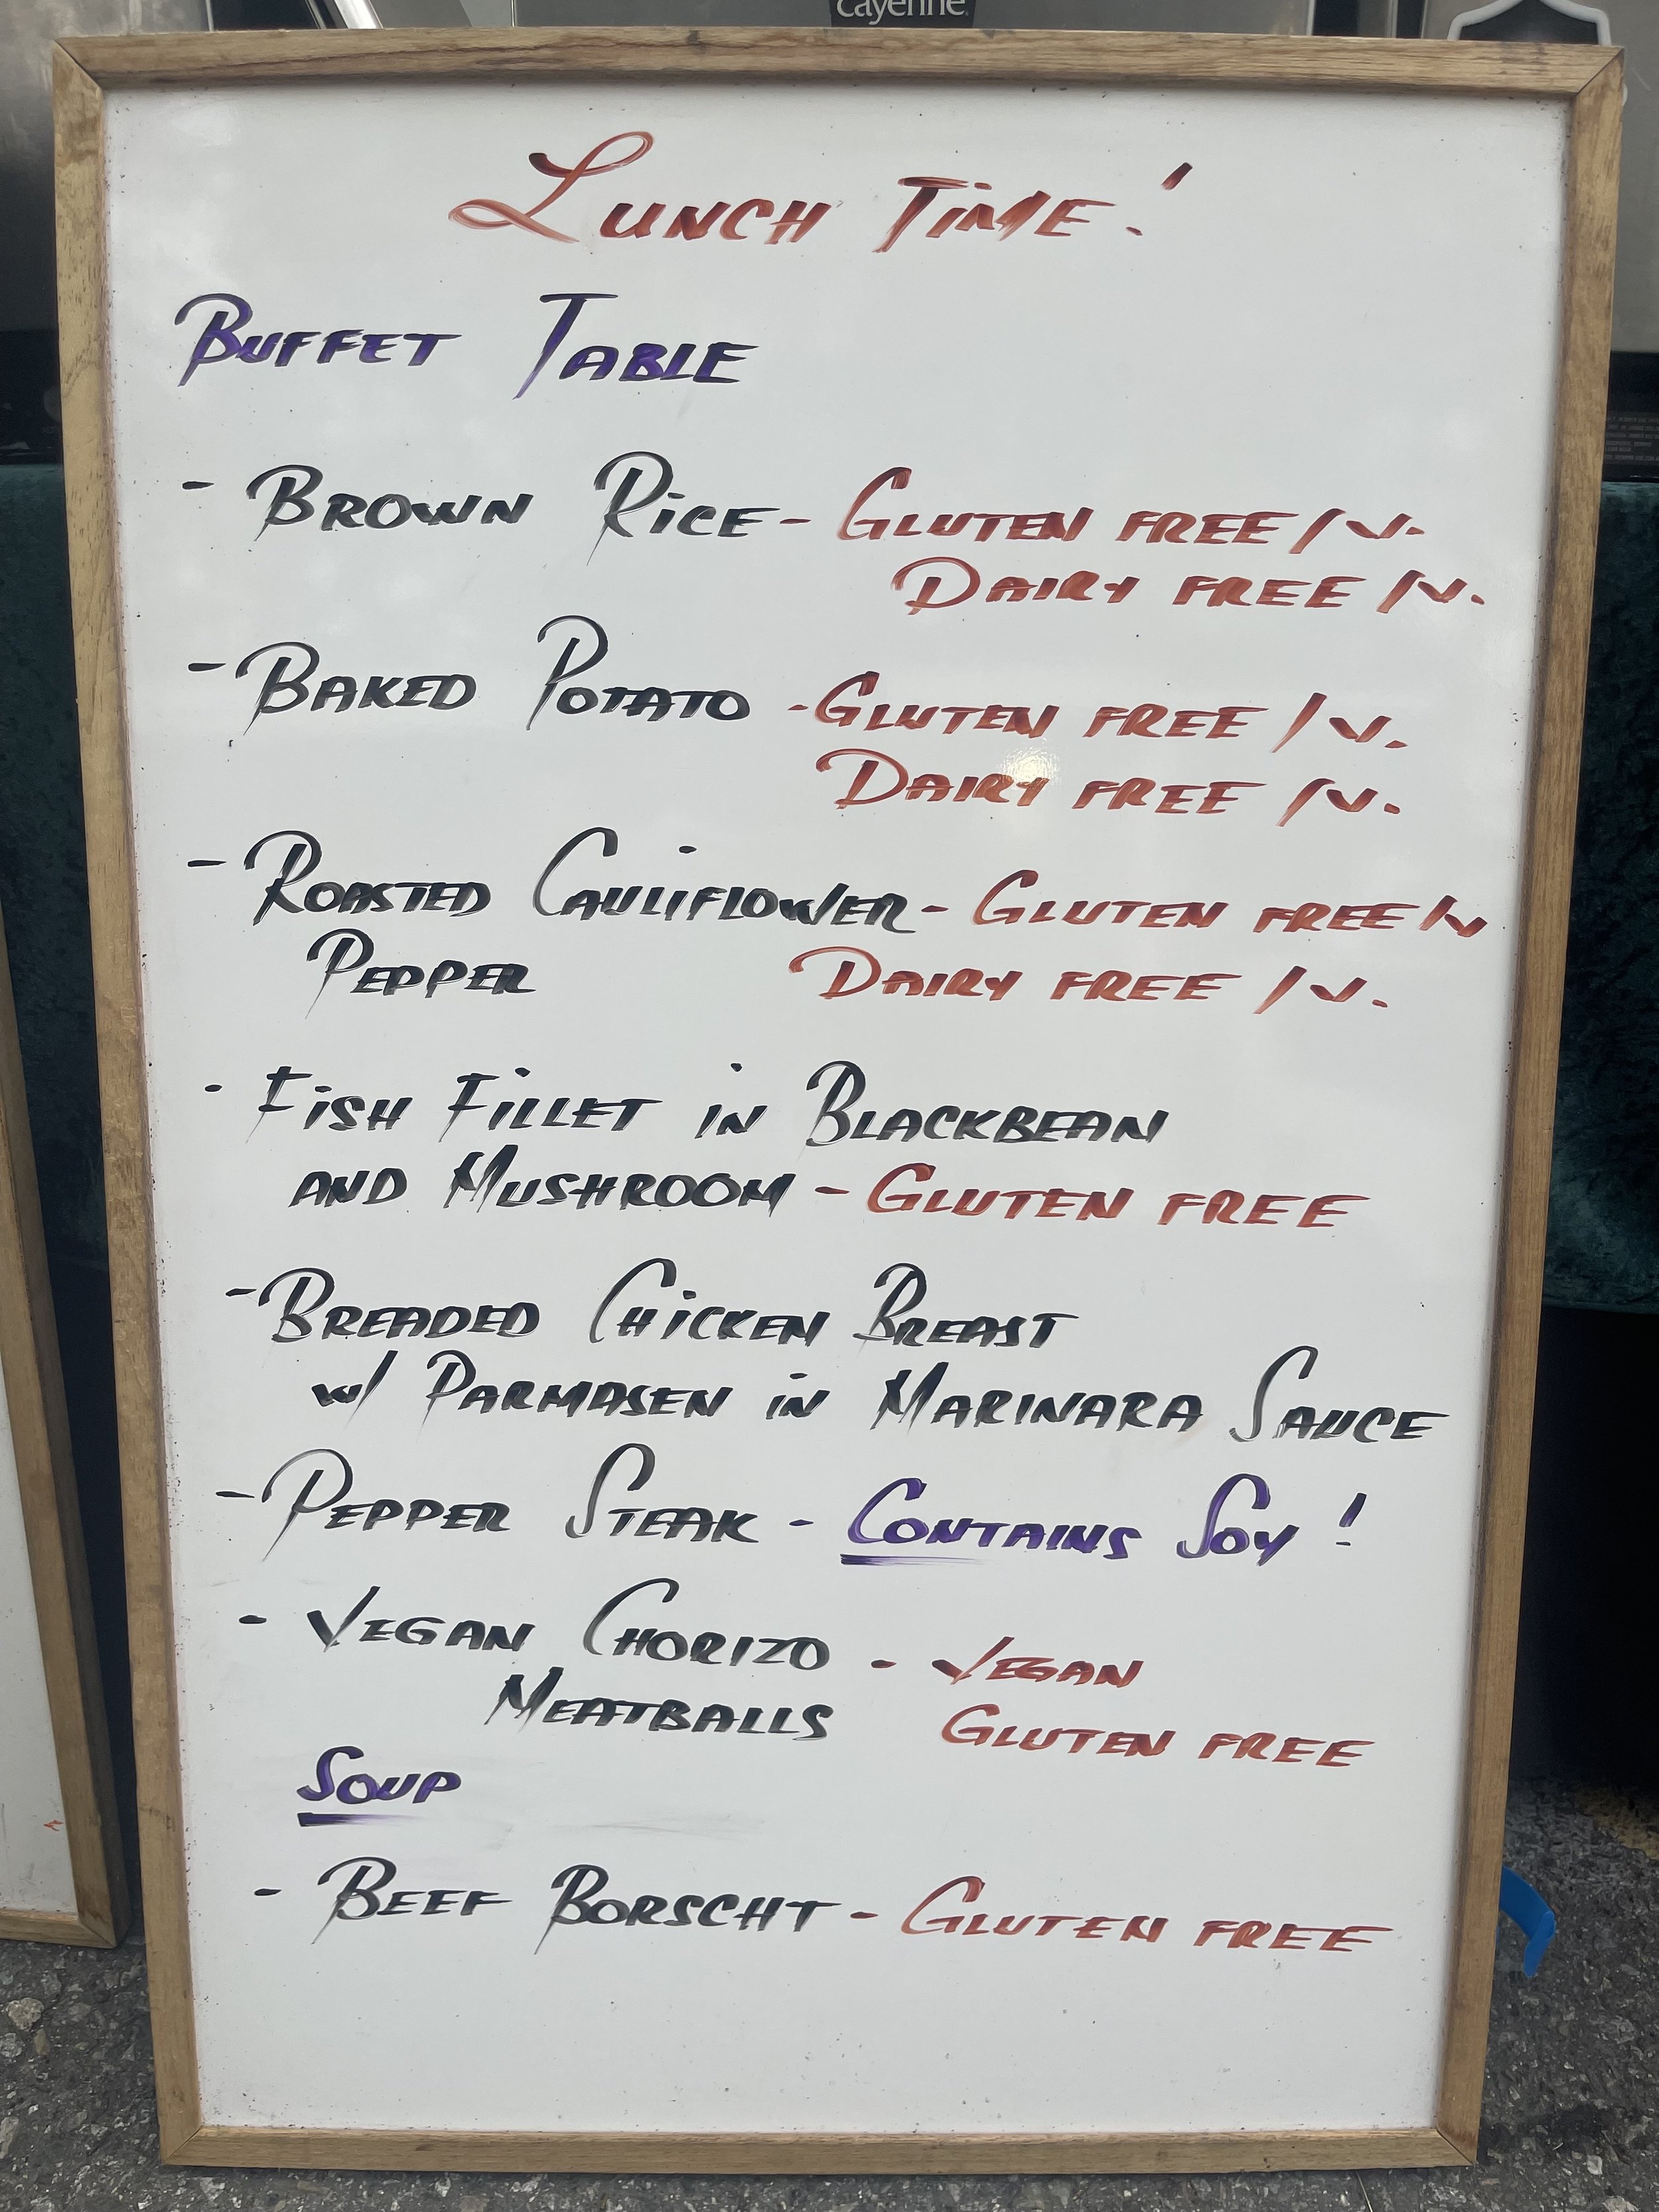 cayenne
LUNCH TIME!
BUFFET TABLE
- BROWN RICE - GLUTEN FREE / V.
DAIRY FREE / V.
- BAKED POTATO - GLUTEN FREE / V.
DAIRY FREE / V.
- ROASTED CAULIFLOWER - GLUTEN FREE / V
PEPPER DAIRY FREE / V.
- FISH FILLET IN BLACKBEAN
AND MUSHROOM - GLUTEN FREE
- BREADED CHICKEN BREAST
W/ PARMASEN IN MARINARA SAUCE
- PEPPER STEAK - CONTAINS SOY!
- VEGAN CHORIZO - VEGAN
MEATBALLS GLUTEN FREE
SOUP
- BEEF BORSCHT - GLUTEN FREE